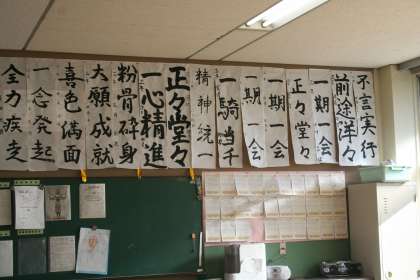 不言実行
前途洋々
一期一会
正々堂々
一期一会
一期一会
一騎当千
精神統一
正々堂々
一心精進
粉骨砕身
大願成就
喜色満面
一念発起
全力疾走